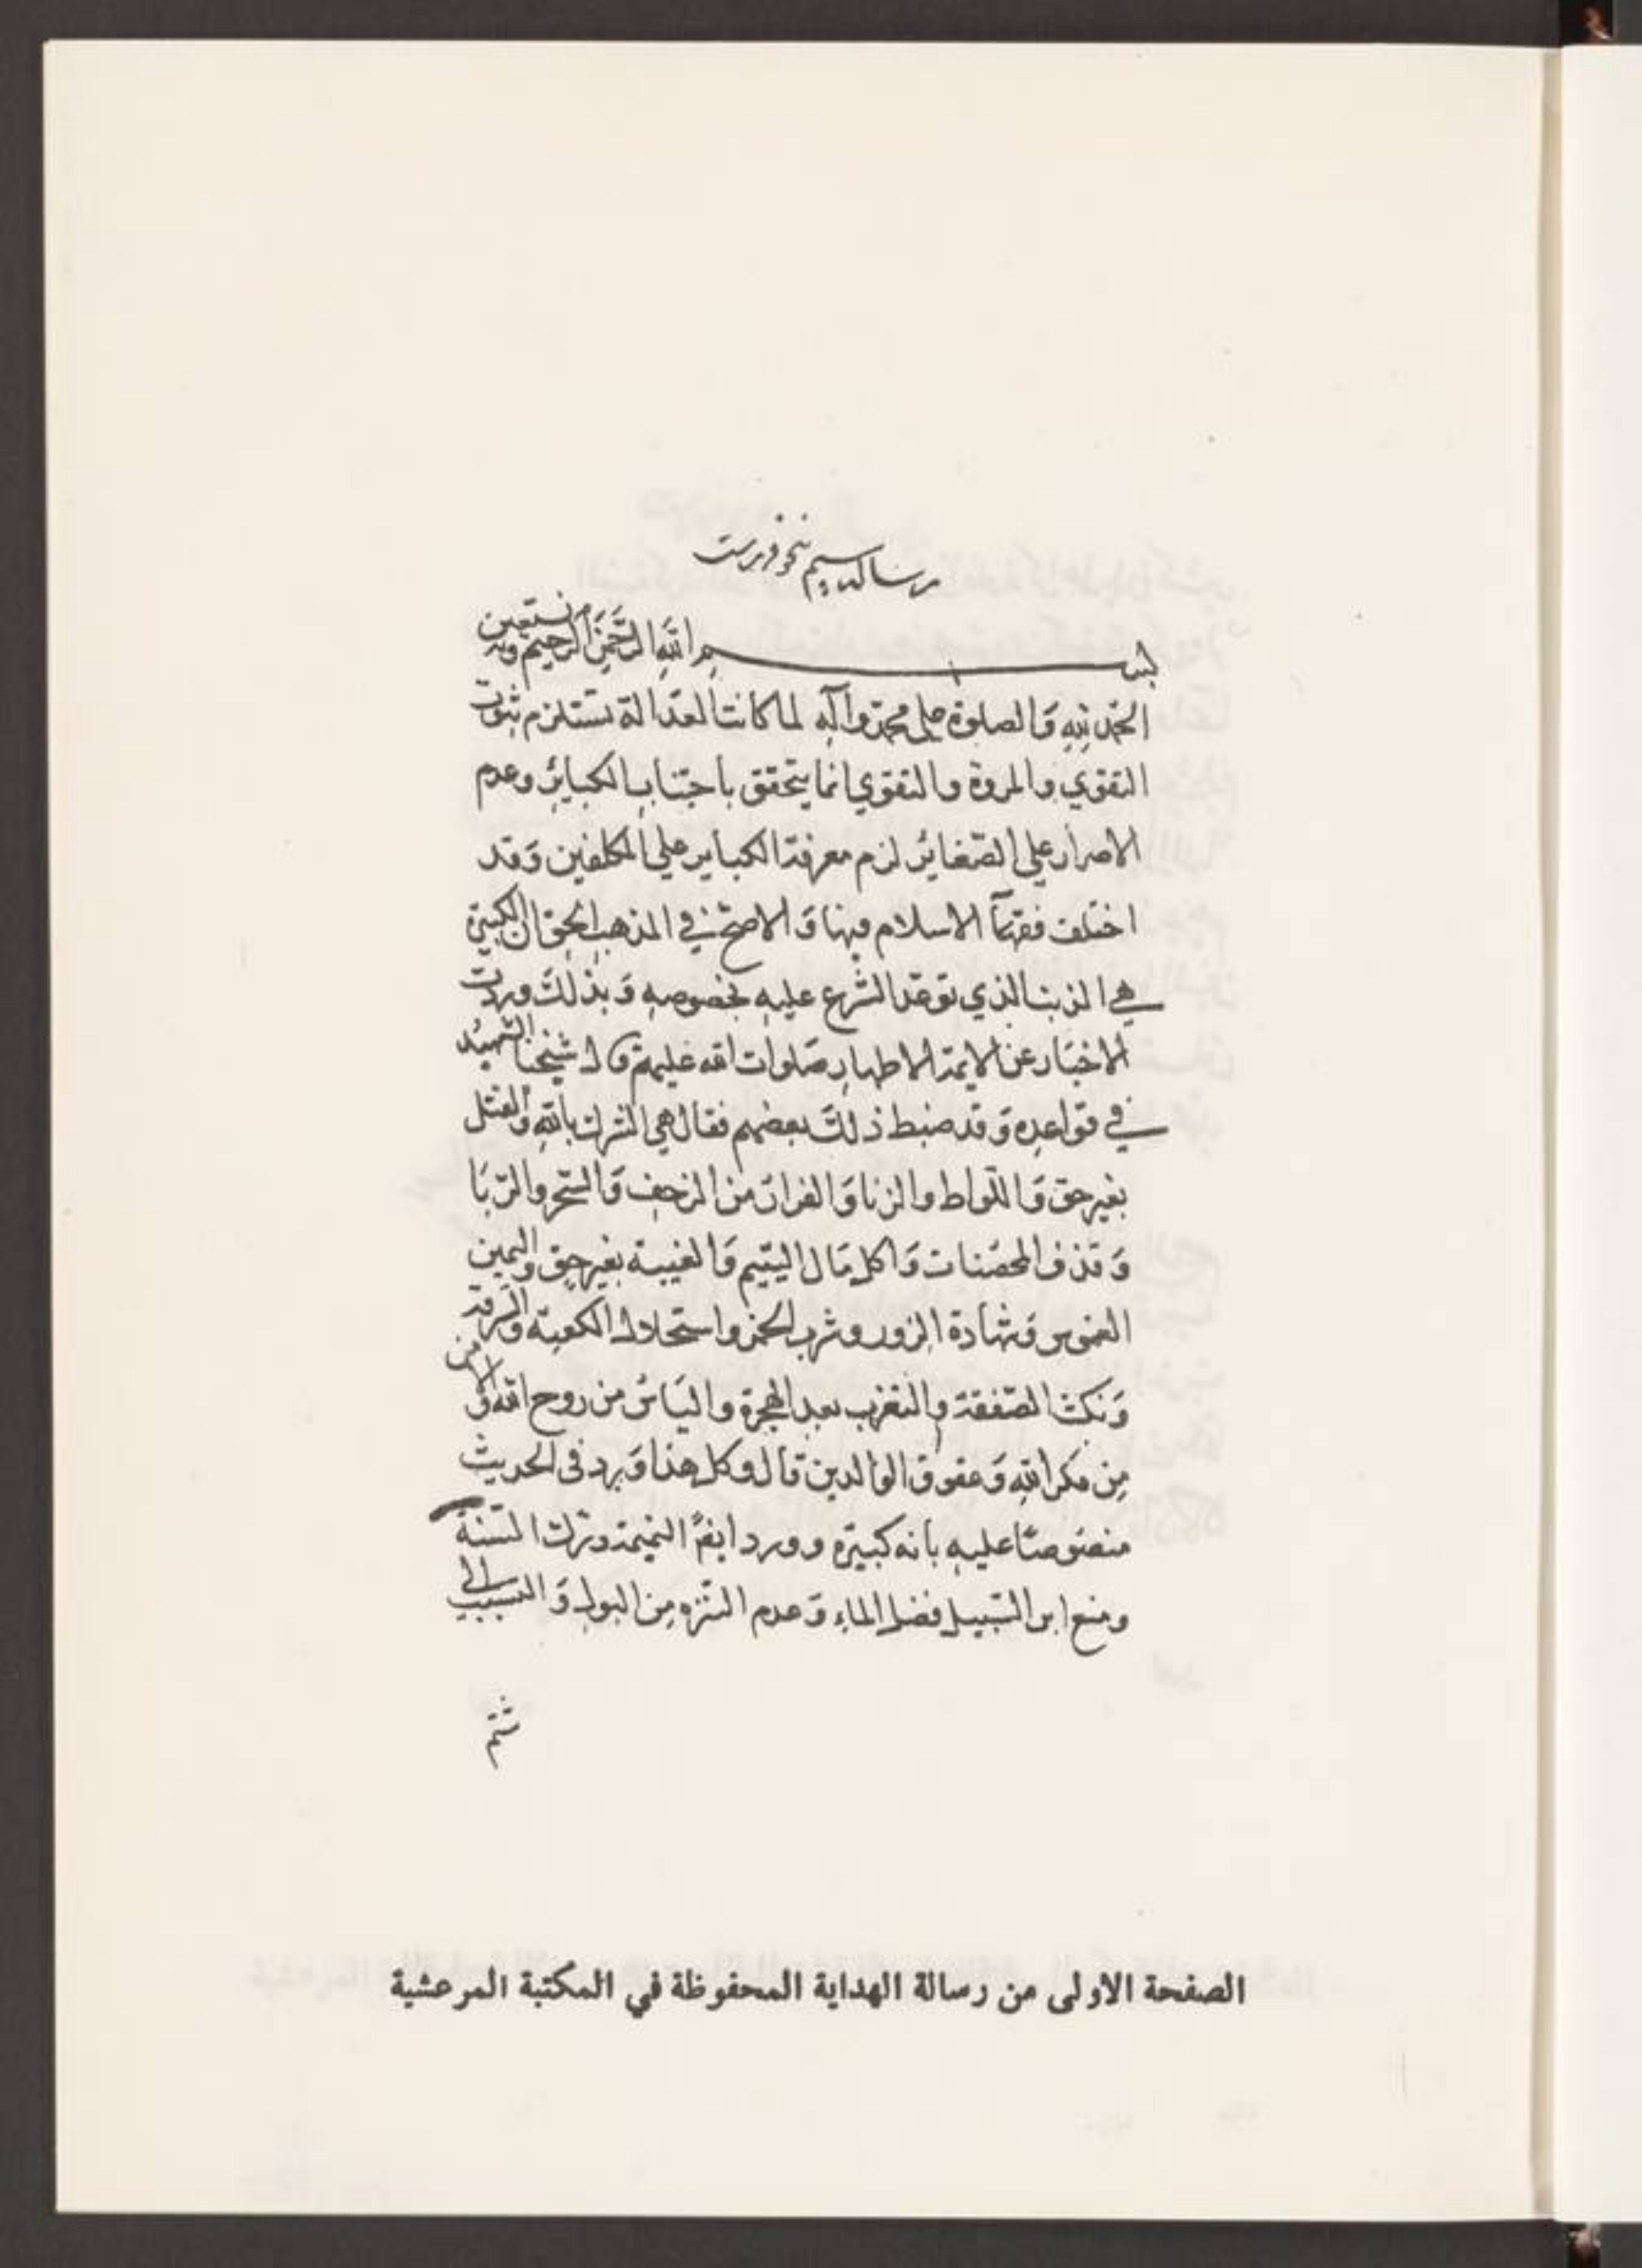 رساله سیم نحو فهرست
بسم الله الرحمن الرحيم وبه نستعين
الحمد لله والصلوة على محمد وآله لما كانت العدالة تستلزم ثبوت
التقوي والمروة والتقوي انما يتحقق باجتناب الكبائر وعدم
الاصرار علي الصغائر لزم معرفة الكبائر علي المكلفين وقد
اختلف فقهآ الاسلام فيها والاصح في المذهب الحق ان الكبيرة
هي الذنب الذي توعد الشرع عليه بخصوصه وبذلك وردت
الاخبار عن الايمة الاطهار صلوات الله عليهم قال شيخنا الشهيد
في قواعده وقد ضبط ذلك بعضهم فقال هي الشرك بالله والقتل
بغير حق واللواط والزنا والفرار من الزحف والسحر والربا
وقذف المحصنات واكل مال اليتيم والغيبة بغير حق واليمين
الغموس وشهادة الزور وشرب الخمر واستحلال الكعبة والسرقة
ونكث الصفقة والتعرب بعد الهجرة والياس من روح الله والامن
من مكر الله وعقوق الوالدين قال وكل هذا ورد في الحديث
منصوصا عليه بانه كبيرة وورد ايضا النميمة وترك السنة
ومنع ابن السبيل فضل الماء وعدم التنزه من البول والتسبب الى
شتم
الصفحة الاولى من رسالة الهداية المحفوظة في المكتبة المرعشية